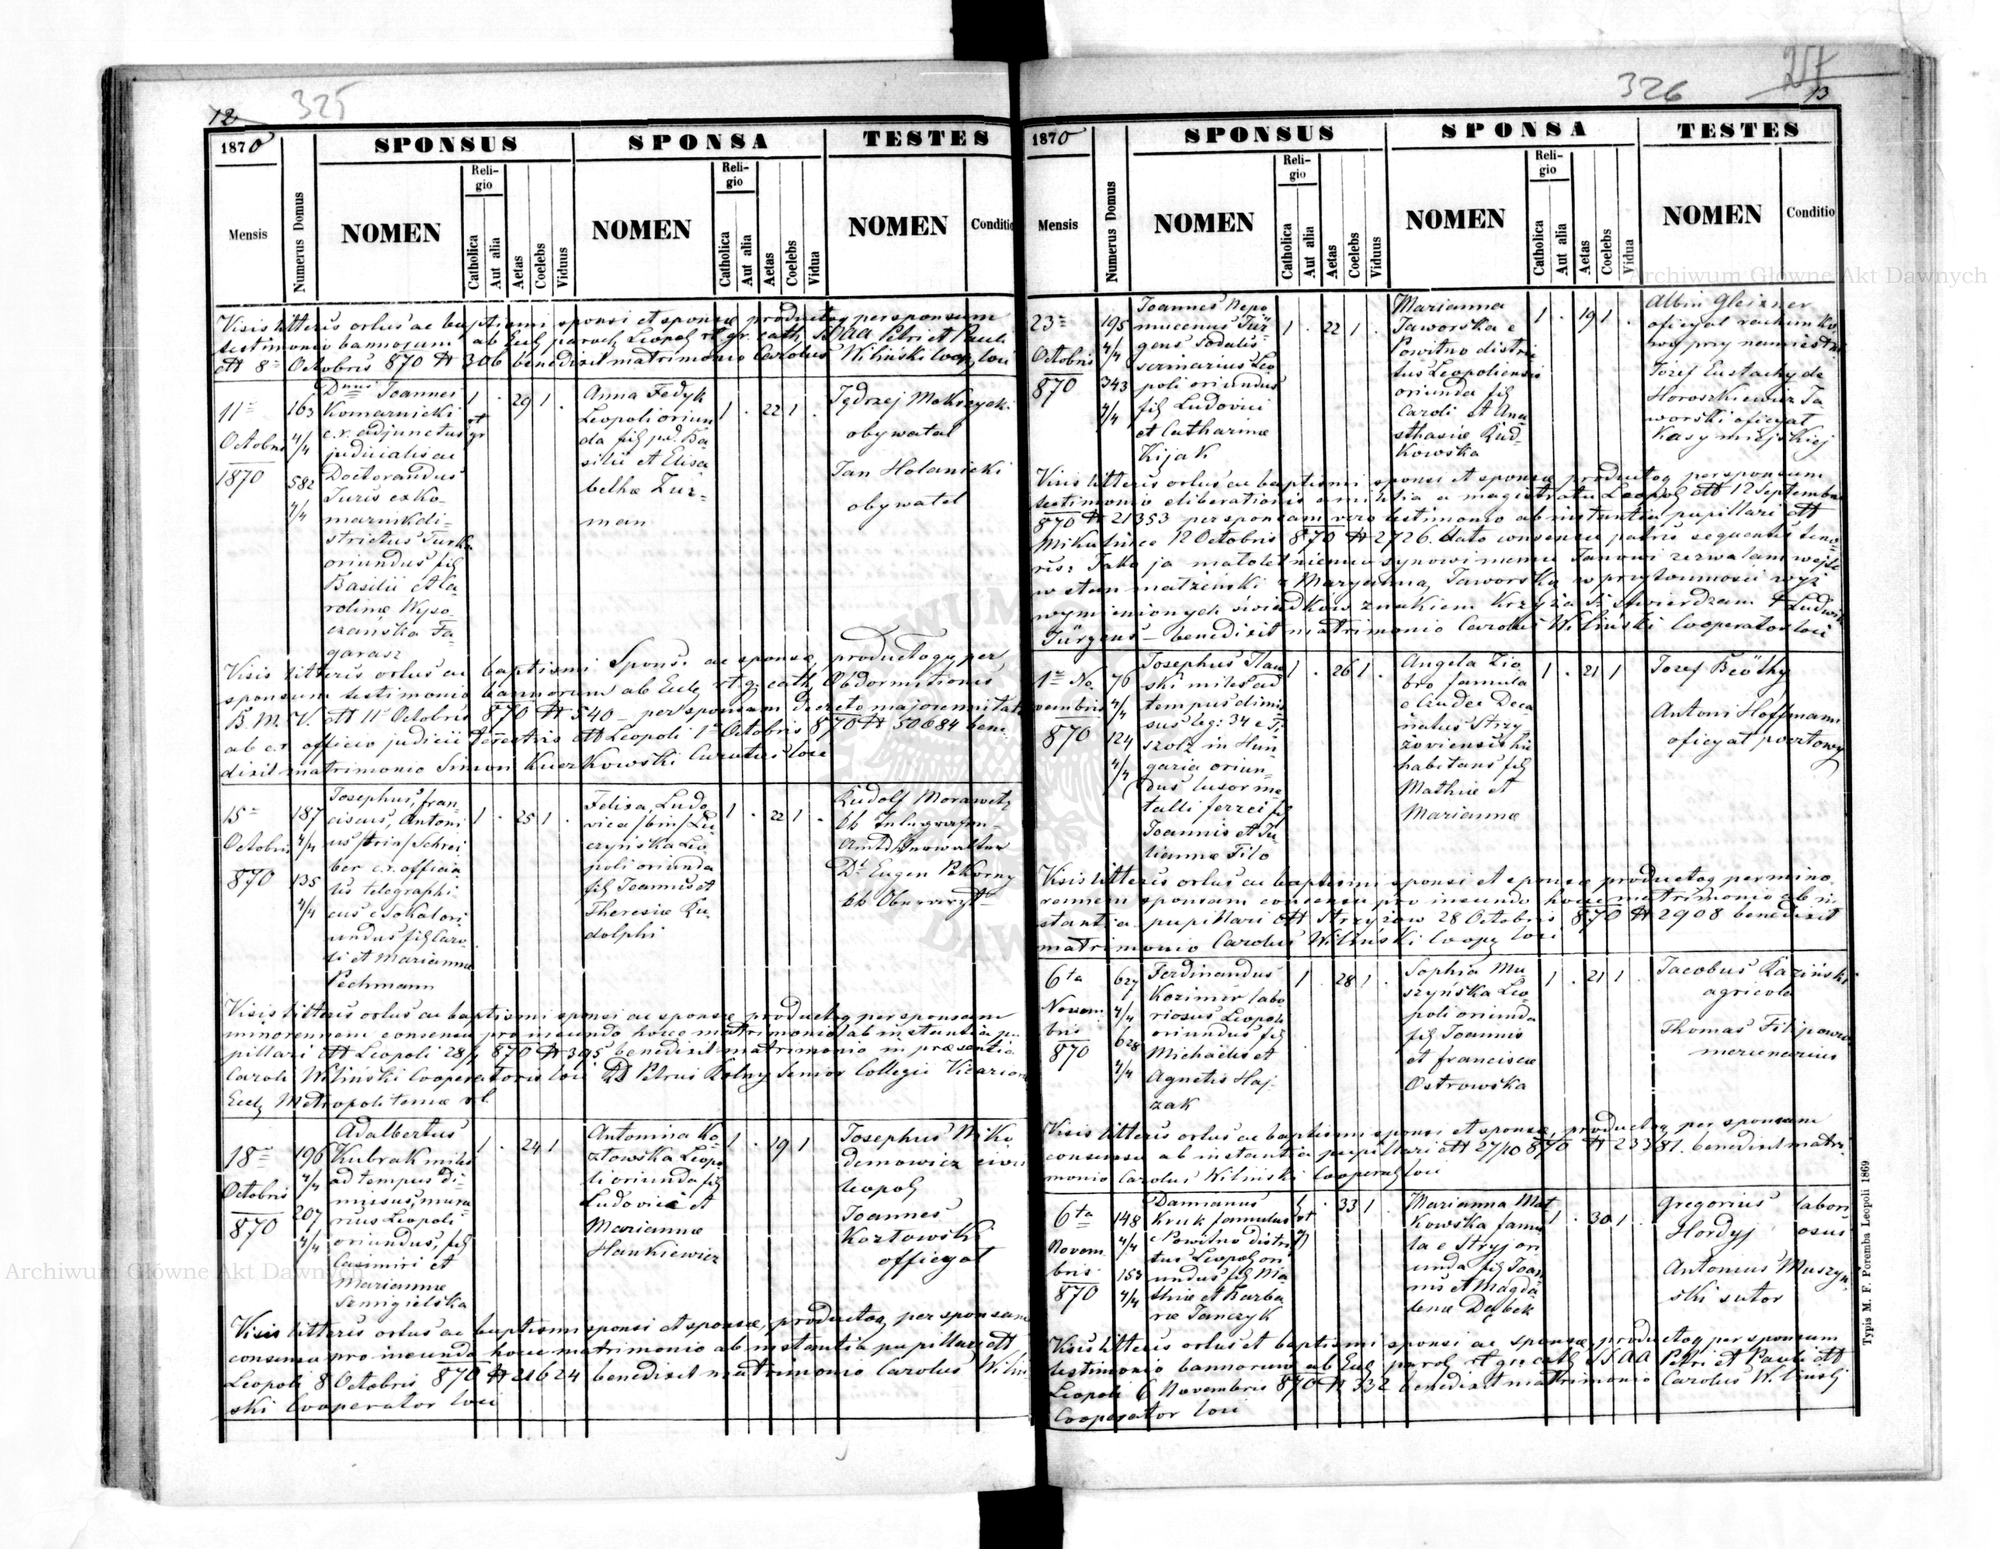 12
325
1870
SPONSUS
SPONSA
TESTES
Mensis
Numerus Domus
NOMEN
Religio
Catholica
Aut alia
Aetas
Coelebs
Viduus
NOMEN
Religio
Catholica
Aut alia
Aetas
Coelebs
Vidua
NOMEN
Conditio
Visis litteris ortus ac baptismi sponsi et sponsæ productoq per sponsum
testimonio bannorum ab Eccl paroch Leopol rt gr. cath. SS AA Petri et Pauli
dtt 8 Octobris 870 N 306 benedixit matrimonio Carolus Wiliński Coop loci
11 Octobris 1870
163 4/4 582 4/4
Dnus Joannes
Komarnicki
c.r. adjunctus
judicialis ac
Doctorandus
Juris ex Ko-
marnik di-
strictus Turka
oriundus fil
Basilii et Ca-
rolinæ Wyso-
czańska Fa-
garasz
1 rt gr 29 1
Anna Fedyk
Leopoli oriun
da fil pd. Ba
silii et Elisa
bethæ Zur-
man
1 . 22 1 .
Jędrzej Mokrzycki
obywatel
Jan Holanicki
obywatel
Visis litteris ortus ac baptismi Sponsi ac sponsæ productoq per
sponsum testimonio bannorum ab Eccl. rt. g. cath. Obdormitionis
B.M.V. dtt 11 Octobris 870 N 540 – per sponsam decreto majorennitatis
ab c.r. officio judicii terrestris dtt Leopoli 1 Octobris 870 N 50684 bene-
dixit matrimonio Simon Kuczkowski Curatus loci
15 Octobris 870
187 4/4 135 4/4
Josephus, fran
ciscus, Antoni
us /trin/ Schrei
ber c.r. officia
lis telegraphi
cus e Sokal ori
undus fil Caro
li et Mariannæ
Pechmann
1 . 25 1 .
Felixa, Ludo
vica /bin/ Lu
czyńska Leo
poli oriunda
fil Joannis et
Theresiæ Ru
dolphi
1 . 22 1 .
Rudolf Morawetz
kk Telegrafen-
Amts Verwalter
Dr Eugen Pokorny
kk
Visis litteris ortus ac baptismi sponsi ac sponsæ productoq per sponsam
minorennem consensu pro ineundo hocce matrimonio ab instantia pu
pillari dtt Leopoli 28/9 870 N 395 benedixit matrimonio in præsentia
Caroli Wiliński Cooperatoris loci RD Petrus Rolny Senior Collegii Vicariorum
Eccl Metropolitanæ rl.
18 Octobris 870
196 4/4 207 4/4
Adalbertus
Kubrak miles
ad tempus di-
missus, mura-
rius Leopoli
oriundus, fil
Casimiri et
Mariannæ
Szmigielska
1 . 24 1
Antonina Ko
złowska Leopo
li oriunda fil
Ludovici et
Mariannæ
Hankiewicz
1 . 19 1
Josephus Niko
demowicz civis
Leopol
Joannes
Kozłowski
officyal
Visis litteris ortus ac baptismi sponsi et sponsæ, productoq per sponsam
consensu pro ineundo hocce matrimonio ab instantia pupillari dtt
Leopoli 8 Octobris 870 N 21624 benedixit matrimonio Carolus Wiliń
ski Cooperator loci
326
13
1870
SPONSUS
SPONSA
TESTES
Mensis
Numerus Domus
NOMEN
Religio
Catholica
Aut alia
Aetas
Coelebs
Viduus
NOMEN
Religio
Catholica
Aut alia
Aetas
Coelebs
Vidua
NOMEN
Conditio
23 Octobris 870
195 4/4 343 4/4
Joannes Nepo
mucenus Jür
gens Sodalis
Leo
poli oriundus
fil Ludovici
et Catharinæ
Kijak
1 . 22 1 .
Marianna
Jaworska e
Powitno distri
ctus Leopoliensis
oriunda fil
Caroli et Ana
sthasiæ Rud-
kowska
1 . 19 1 .
Albin Gleixner
oficyal rachunko
wy przy namiestni
Józef Eustachy de
Horoszkiewicz Ja
worski oficyal
kasy miejskiej
Visis litteris ortus ac baptismi sponsi et sponsæ productoq per sponsum
testimonio eliberationis a militia a magistratu Leopol dtt 12 Septembr
870 N 21353 per sponsam vero testimonio ab instantia pupillari dtt
Mikulińce 12 Octobris 870 N 2726. dato consensu patris sequentis teno-
ris: Jako ja małoletniemu synowi memu Janowi zezwalam wejść
w stan małżeński z Maryanną Jaworską w przytomności wyż
wymienionych świadków znakiem krzyża S. stwierdzam + Ludwik
Jürgens – benedixit matrimonio Carolus Wiliński Cooperator loci
1 Novembris 870
76 4/4 124 4/4
Josephus Ilaw
ski miles ad
tempus dimis
sus leg: 34 e Ti
szolz in Hun
garia oriun-
dus fusor me
talli ferrei fil
Joannis et Ju
liannæ Filo
1 . 26 1 .
Angela Zio
bro famula
e Czudec Deca
natus Strzy
żoviensis hic
habitans fil
Mathiæ et
Mariannæ
1 . 21 1
Józef Beöthy
Antoni Hoffmann
oficyal pocztowy
Visis litteris ortus ac baptismi sponsi et sponsæ productoq per mino
rennem sponsam consensu pro ineundo hocce matrimonio ab in
stantia pupillari dtt Strzyżow 28 Octobris 870 N 2908 benedixit
matrimonio Carolus Wiliński Coop loci
6ta Novembris 870
627 4/4 628 4/4
Ferdinandus
Kozimir labo
riosus Leopoli
oriundus fil
Michaelis et
Agnetis Haj-
zak
1 . 28 1 .
Sophia Mu
szyńska Leo
poli oriunda
fil Joannis
et franciscæ
Ostrowska
1 . 21 1 .
Jacobus Raziński
agricola
Thomas Filipowicz
mercenarius
Visis litteris ortus ac baptismi sponsi et sponsæ, productoq per sponsam
consensu ab instantia pupillari dtt 27/10 870 N 23381. benedixit matri
monio Carolus Wiliński Cooperat loci
6ta Novembris 870
148 4/4 153 4/4
Damianus
Kruk famulus
e Powitno distri
ctus Leopol ori
undus fil Ma
thiæ et Barba
ræ Janczyk
1 rt gr . 33 1 .
Marianna Mat
kowska famu
la e Stryj ori
unda fil Joan
nis et Magda
lenæ Dębek
1 . 30 1 .
Gregorius labori
Hordyj osus
Antonius Muszyń
ski sutor
Visis litteris ortus et baptismi sponsi ac sponsæ productoq per sponsum
testimonio bannorum ab Eccl paroch rt gr cath SS AA Petri et Pauli dtt
Leopoli 6 Novembris 870 N 332 benedixit matrimonio Carolus Wiliński
Cooperator loci
Typis M. F. Poremba Leopoli 1869
Archiwum Główne Akt Dawnych
Archiwum Główne Akt Dawnych